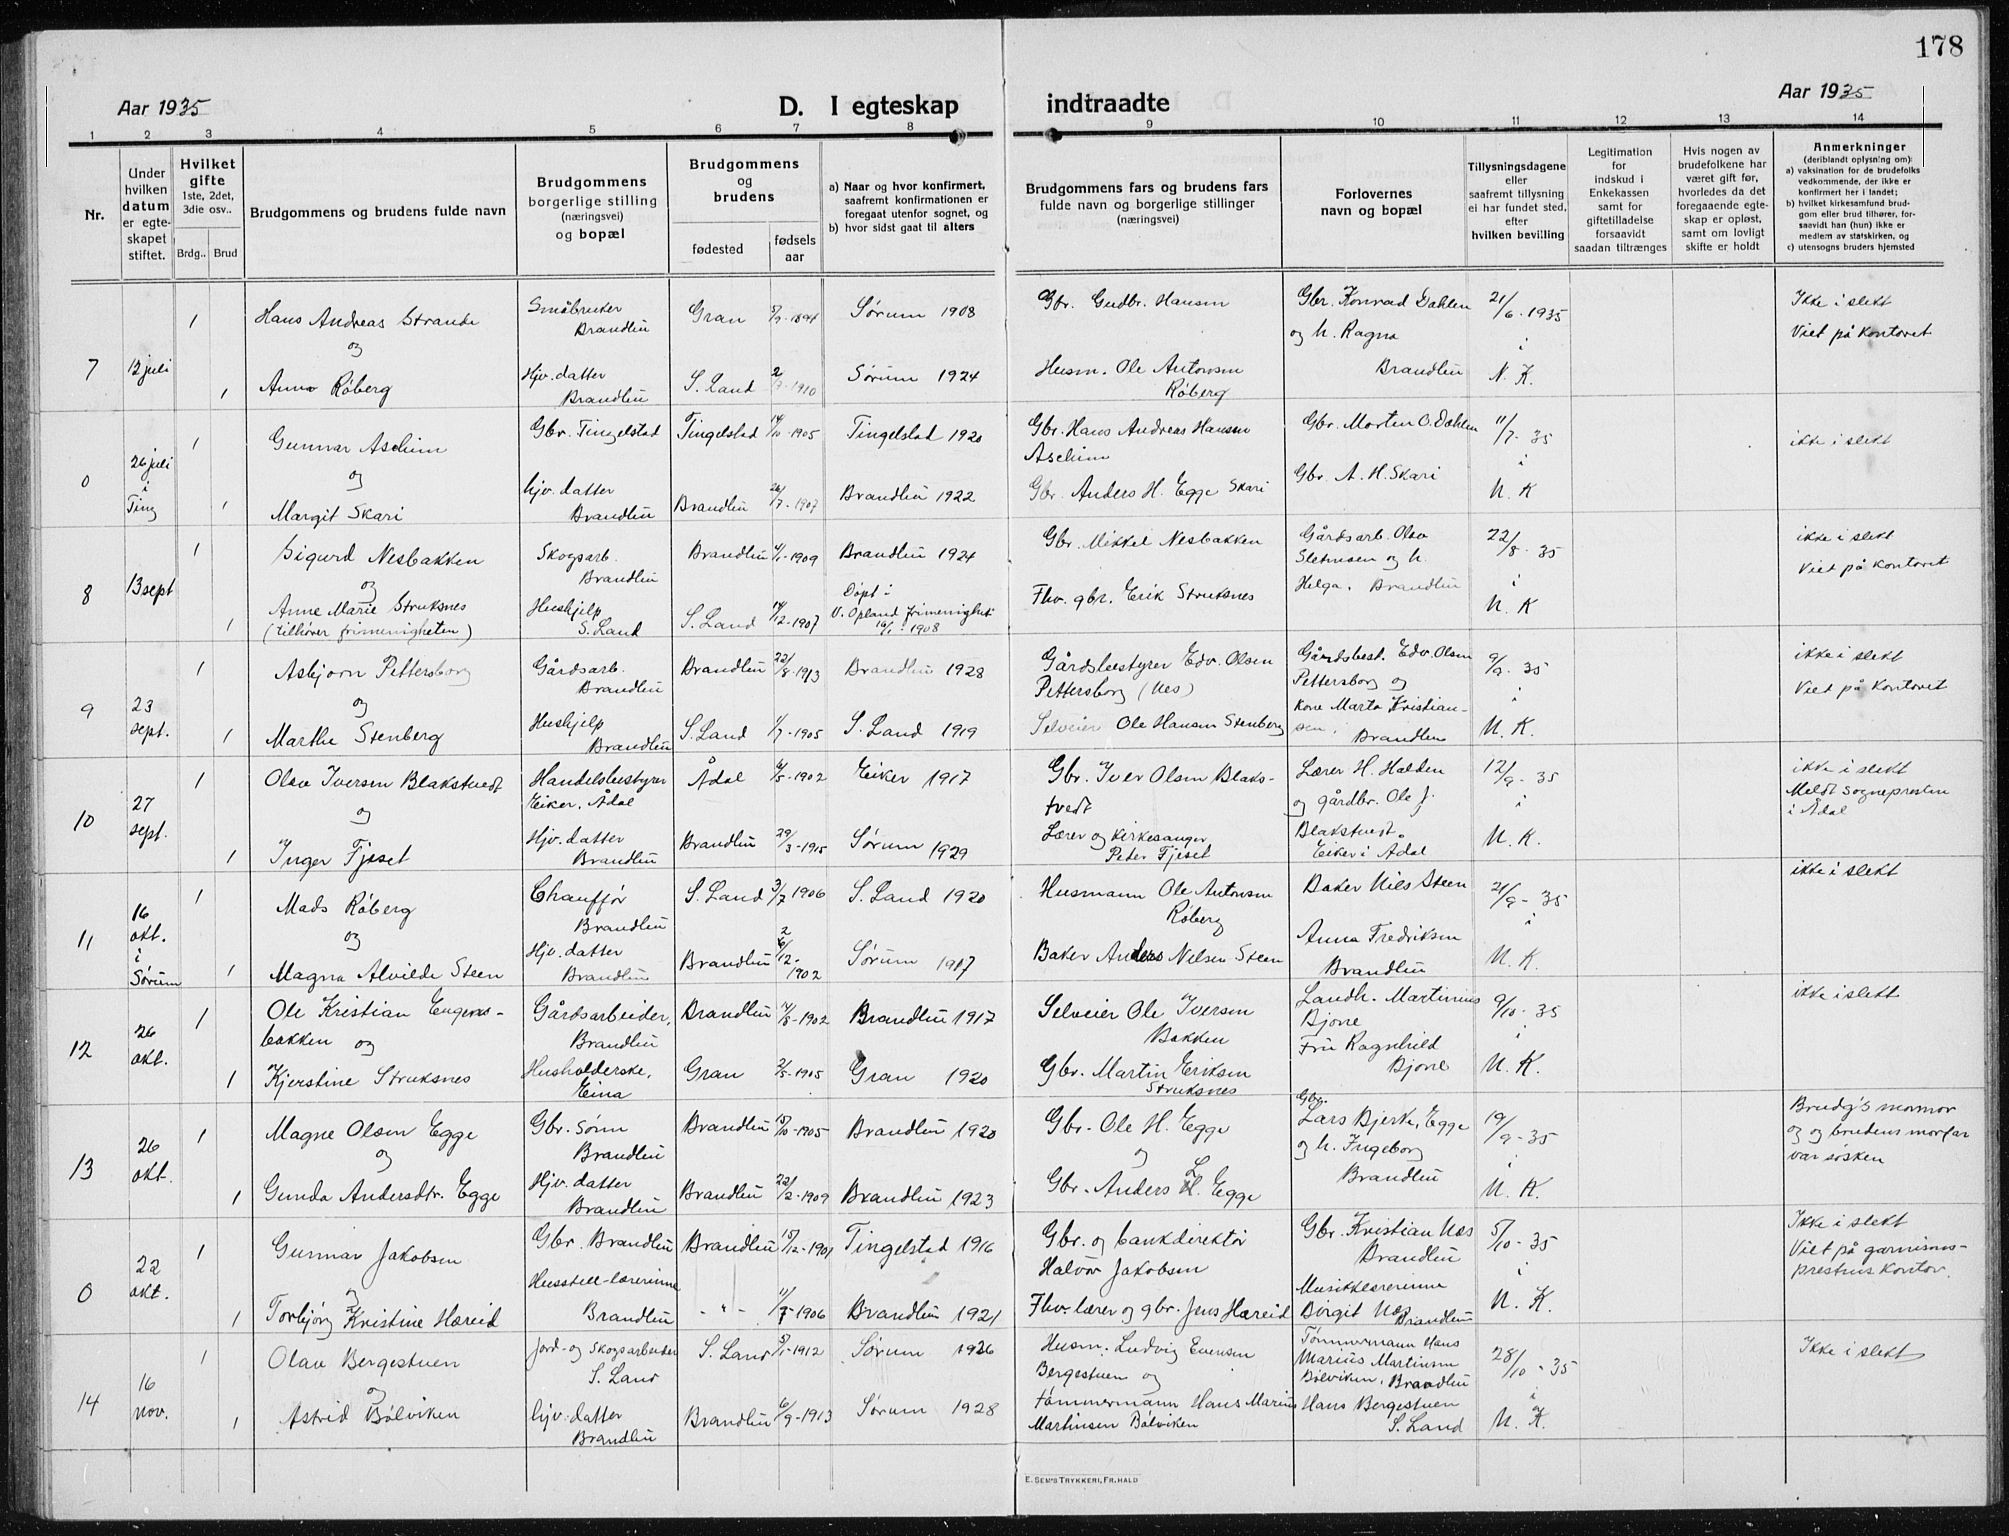 178
Aar 1935
D. I egteskap indtraadte
Aar 1935
1 2 3 4 5 6 7 8 9 10 11 12 13 14
Nr.
Under
hvilken
datum
er egte-
skapet
stiftet.
Hvilket
gifte
1ste, 2det,
3die osv..
Brdg..
Brud
Brudgommens og brudens fulde navn
Brudgommens
borgerlige stilling
(næringsvei)
og bopæl
Brudgommens
og
brudens
fødested
fødsels
aar
a) Naar og hvor konfirmert,
saafremt konfirmationen er
foregaat utenfor sognet, og
b) hvor sidst gaat til alters
Brudgommens fars og brudens fars
fulde navn og borgerlige stillinger
(næringsvei)
Forlovernes
navn og bopæl
Tillysningsdagene
eller
saafremt tillysning
ei har fundet sted,
efter
hvilken bevilling
Legitimation
for
indskud i
Enkekassen
samt for
giftetilladelse
forsaavidt
saadan tiltrænges
Hvis nogen av
brudefolkene har
været gift før,
hvorledes da det
foregaaende egte-
skap er opløst,
samt om lovligt
skifte er holdt
Anmerkninger
(deriblandt oplysning om):
a) vaksination for de brudefolks
vedkommende, der ikke er
konfirmert her i landet;
b) hvilket kirkesamfund brud-
gom eller brud tilhører, for-
saavidt han (hun) ikke er
medlem av statskirken, og
c) utensogns bruders hjemsted
7
12 juli
1
Hans Andreas Strande
og
1
Anna Røberg
Småbruker
Brandbu
Hjv. datter
Brandbu
Gran
5/9-1894
S. Land
1910
Sørum 1908
Sørum 1924
Gbr. Gudbr. Hansen
Husm. Ole Antonsen
Røberg
Gbr. Konrad Dahlen
og h. Ragna
Brandbu
21/6-1935
i
N. K.
Ikke i slekt
Viet på kontoret
0
26 juli
i
Ting
1
Gunnar Aschim
og
1
Margit Skari
Gbr. Tingelstad
hjv. datter
Brandbu
Tingelstad
14/10-1905
Brandbu
26/7-1907
Tingelstad 1920
Brandbu 1922
Gbr. Hans Andreas Hansen
Aschim
Gbr. Anders H. Egge Skari
Gbr. Morten O. Dahlen
Gbr. A. H. Skari
11/7-35
i
N. K
ikke i slekt
8
13 sept
1
Sigurd Nesbakken
og
Anne Marie Struksnes
1
(tilhører frimenigheten)
Skogsarb.
Brandbu
Hushjelp
S. Land
Brandbu
1909
S. Land
12-1907
Brandbu 1924
Døpt i
V. Opland frimenighet
16/1-1908
Gbr. Mikkel Nesbakken
Fhv. gbr. Erik Struksnes
Gårdsarb. Olav
Sletmoen og h.
Helga, Brandbu
22/8-35
i
N. K
ikke i slekt
Viet på kontoret
9
23
sept.
1
Asbjørn Pettersborg
og
1
Marthe Stenberg
Gårdsarb.
Brandbu
Hushjelp
Brandbu
Brandbu
22/8-1913
S. Land
1/7-1905
Brandbu 1928
S. Land 1919
Gårdsbestyrer Edv. Olsen
Pettersborg (Nes)
Selveier Ole Hansen Stenberg
Gårdsbest. Edv. Olsen
Pettersborg og
kone Marta Kristian-
sen, Brandbu
9/9-35
i
N. K.
ikke i slekt
Viet på kontoret
10
27
sept.
1
Olav Iversen Blakstvedt
og
1
Inger Fjeset
Handelsbestyrer
Eiker, Ådal
Hjv. datter
Brandbu
Ådal
6/5-1902
Brandbu
29/3-1915
Eiker 1917
Sørum 1929
Gbr. Iver Olsen Blaks-
tvedt
Lærer og kirkesanger
Peder Fjeset
Lærer H. Halden
og gårdbr. Ole J.
Blakstvedt,
Eiker i Ådal
12/9-35
i
N. K.
ikke i slekt
Meldt sognepresten
i Ådal
11
16
okt.
i
Sørum
1
Mads Røberg
og
1
Magna Alvilde Steen
Chauffør
Brandbu
Hjv. datter
Brandbu
S. Land
3/7 1906
Brandbu
6/12-
1902
S. Land 1920
Sørum 1917
Husmann Ole Antonsen
Røberg
Baker Anders Nelsen Steen
Baker Nils Steen
Anna Fredriksen
Brandbu
21/9-35
i
N. K.
ikke i slekt
12
26
okt.
1
Ole Kristian Engenes-
bakken og
1
Kjerstine Struksnes
Gårdsarbeider,
Brandbu
Husholderske,
Eina
Brandbu
1902
Gran
2/5-1905
Brandbu 1917
Gran 1920
Selveier Ole Iversen
Bakken
Gbr. Martin Eriksen
Struksnes
Landh. Martinius
Bjone
Fru Ragnhild
Bjone
9/10-35
i
N. K.
ikke i slekt
13
26
okt.
1
Magne Olsen Egge
og
1
Gunda Andersdtr. Egge
Gbr. sønn
Brandbu
Hjv. datter
Brandbu
Brandbu
15/10-1905
Brandbu
22/2-1909
Brandbu 1920
Brandbu 1923
Gbr. Ole H. Egge
og
Gbr. Anders L. Egge
Gbr.
Lars Bjerke, Egge
og h. Ingeborg
Brandbu
19/9-35
i
N. K.
Brudg's mormor
og og brudens morfar
var søsken
0
22
okt.
1
Gunnar Jakobsen
og
1
Torbjørg Kristine Hæreid
Gbr. Brandbu
Husstell-lærerinne
Brandbu
Brandbu
15/12-1901
- " -
1906
Tingelstad 1916
Brandbu 1921
Gbr. og bankdirektør
Halvor Jakobsen
Fhv. lærer og gbr. Jens Hæreid
Gbr. Kristian Næs
Brandbu
Musikklærerinne
Birgit Næs
Brandbu
5/10-35
i
N. K.
Ikke i slekt
Viet på garnisons-
prestens kontor.
14
16
nov.
1
Olav Bergestuen
og
1
Astrid Bølviken
Jord- og Skogsarbeider
S. Land
hjv. datter
Brandbu
S. Land
5/1-1912
Brandbu
6/9-1913
Sørum 1926
Sørum 1928
Husm. Ludvig Evensen
Bergestuen og
tømmermann Hans Marius
Martinsen Bølviken
Tømmermann Hans
Marius Martinsen
Bølviken, Brandbu
og
Hans Bergestuen
S. Land
28/10-35
i
N. K.
Ikke i slekt
E. SEM'S TRYKKERI, FR.HALD